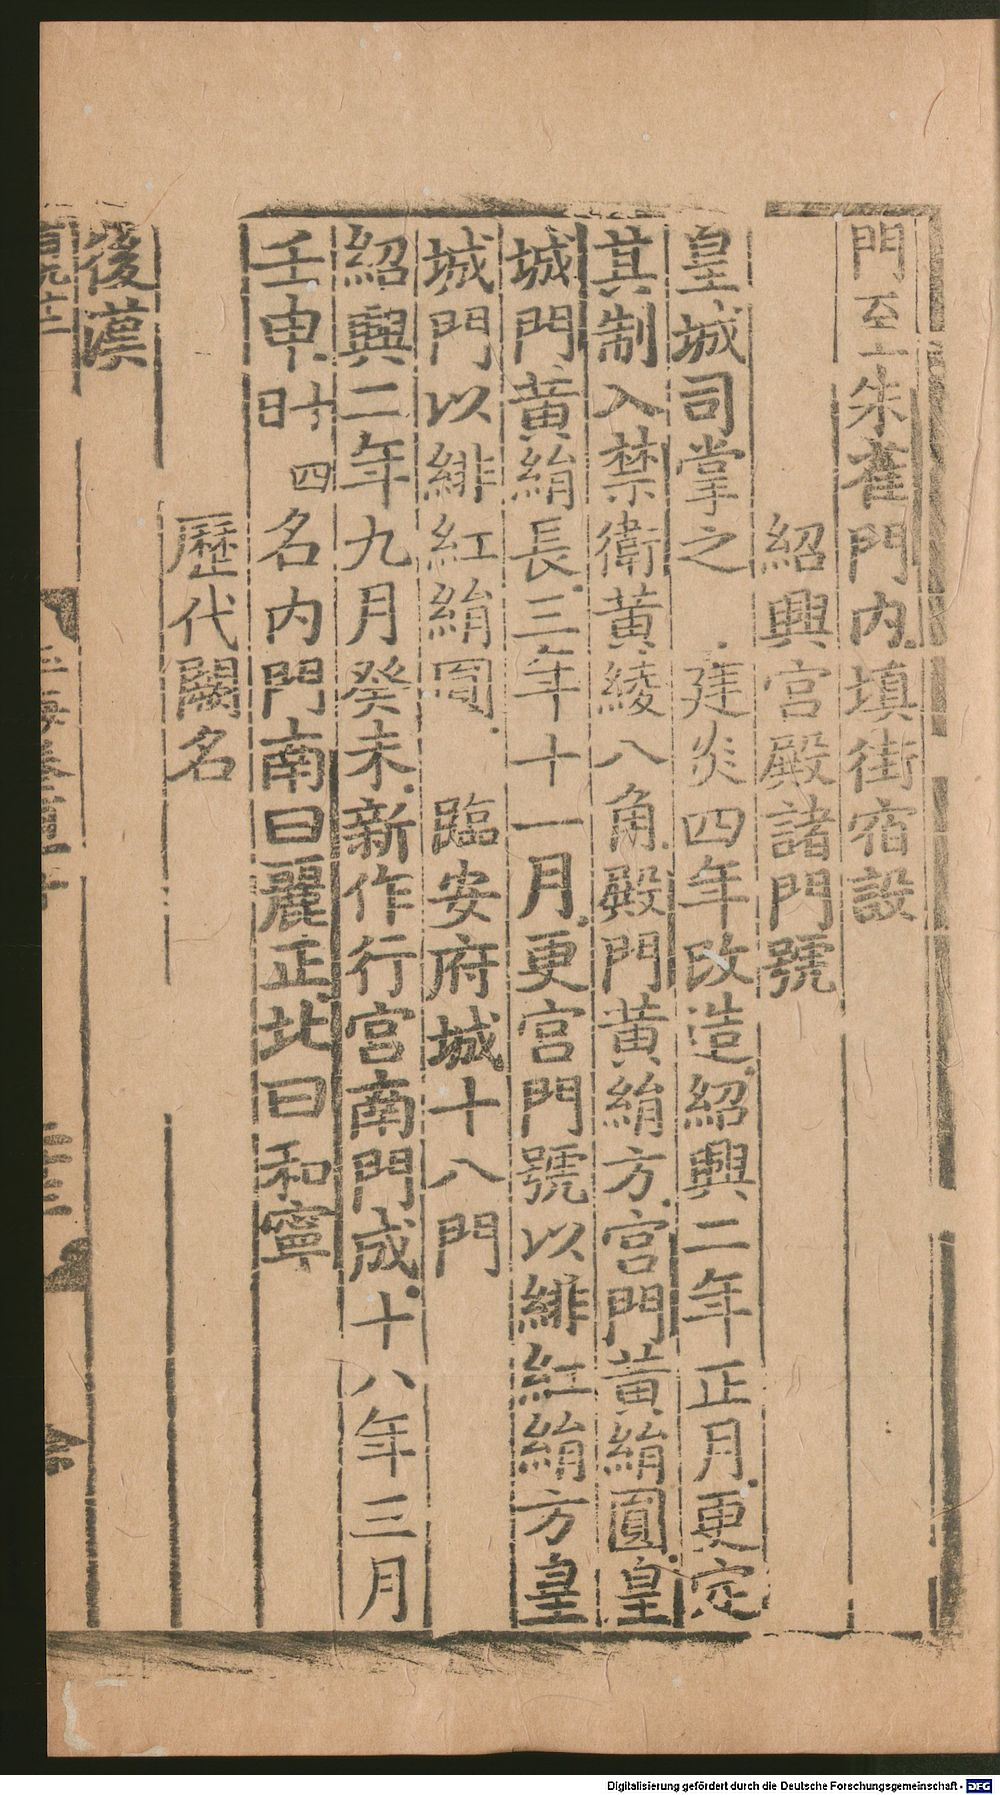 門至朱雀門內填街宿設
紹興宮殿諸門號
皇城司掌之　建炎四年改造紹興二年正月更定
其制入禁衛黃綾八角殿門黃絹方宮門黃絹圓皇
城門黃絹長三年十一月更宮門號以緋紅絹方皇
城門以緋紅絹圓　臨安府城十八門
紹興二年九月癸未新作行宮南門成十八年三月
壬申十四日名內門南曰麗正北曰和寧
歷代闕名
後漢
Digitalisierung gefördert durch die Deutsche Forschungsgemeinschaft - DFG